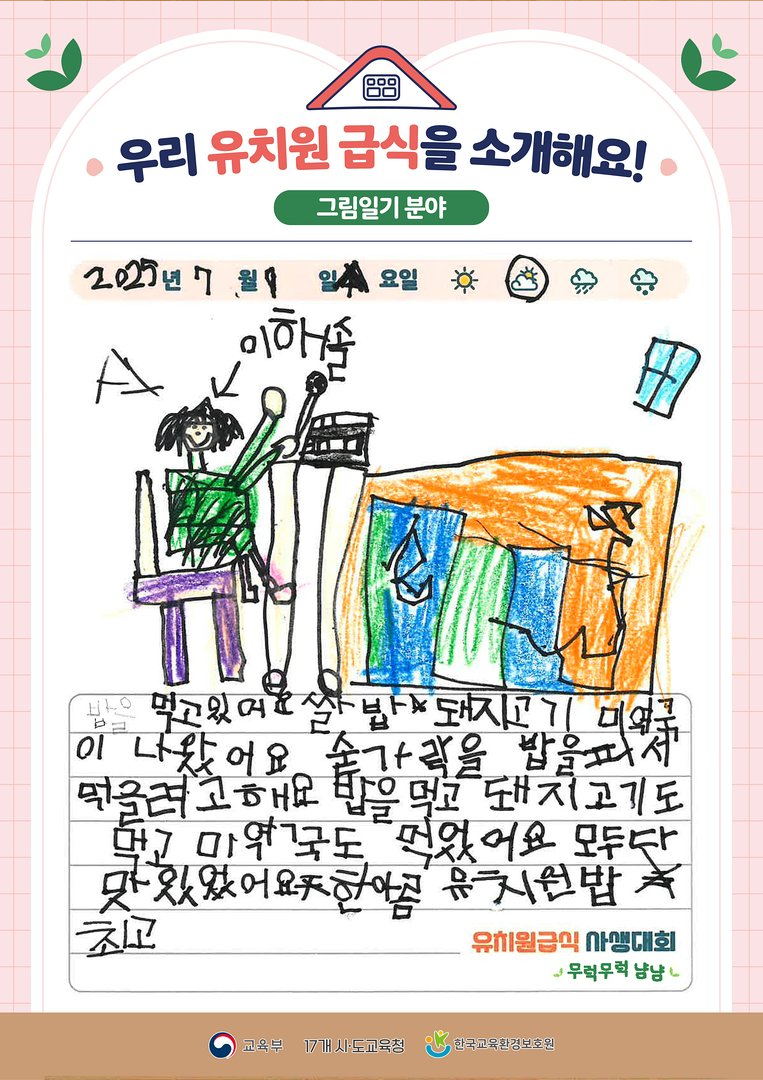 우리 유치원 급식을 소개해요!
그림일기 분야
2025년 7 월 1 일 요일
이해솔
밥을 먹고있어요 쌀밥 돼지고기 미역국
이 나왔어요 숟가락을 밥을퍼서
먹을려고해요 밥을먹고 돼지고기도
먹고 미역국도 먹었어요 모두다
맛있었어요 한아름 유치원밥
최고
유치원급식 사생대회
무럭무럭 냠냠
교육부 17개 시·도교육청 한국교육환경보호원